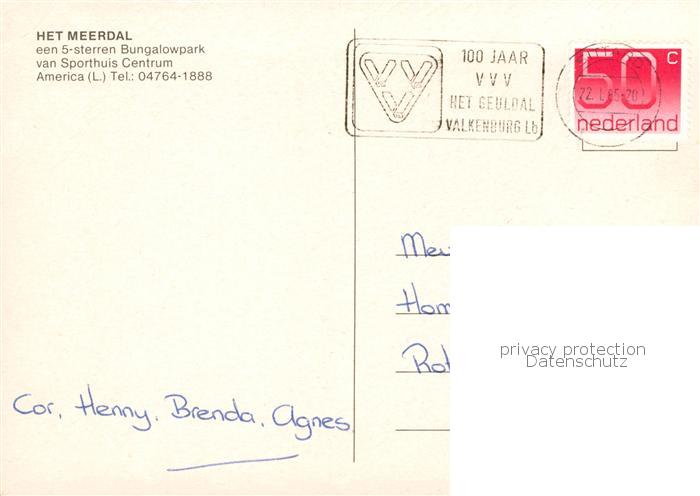 HET MEERDAL
een 5-sterren Bungalowpark
van Sporthuis Centrum
America (L.) Tel.: 04764-1888
100 JAAR
VVV
HET GEULDAL
VALKENBURG Lb
VVV
50 c
nederland
22.I.85-20
Hom
Rot
privacy protection
Datenschutz
Cor, Henny, Brenda, Agnes